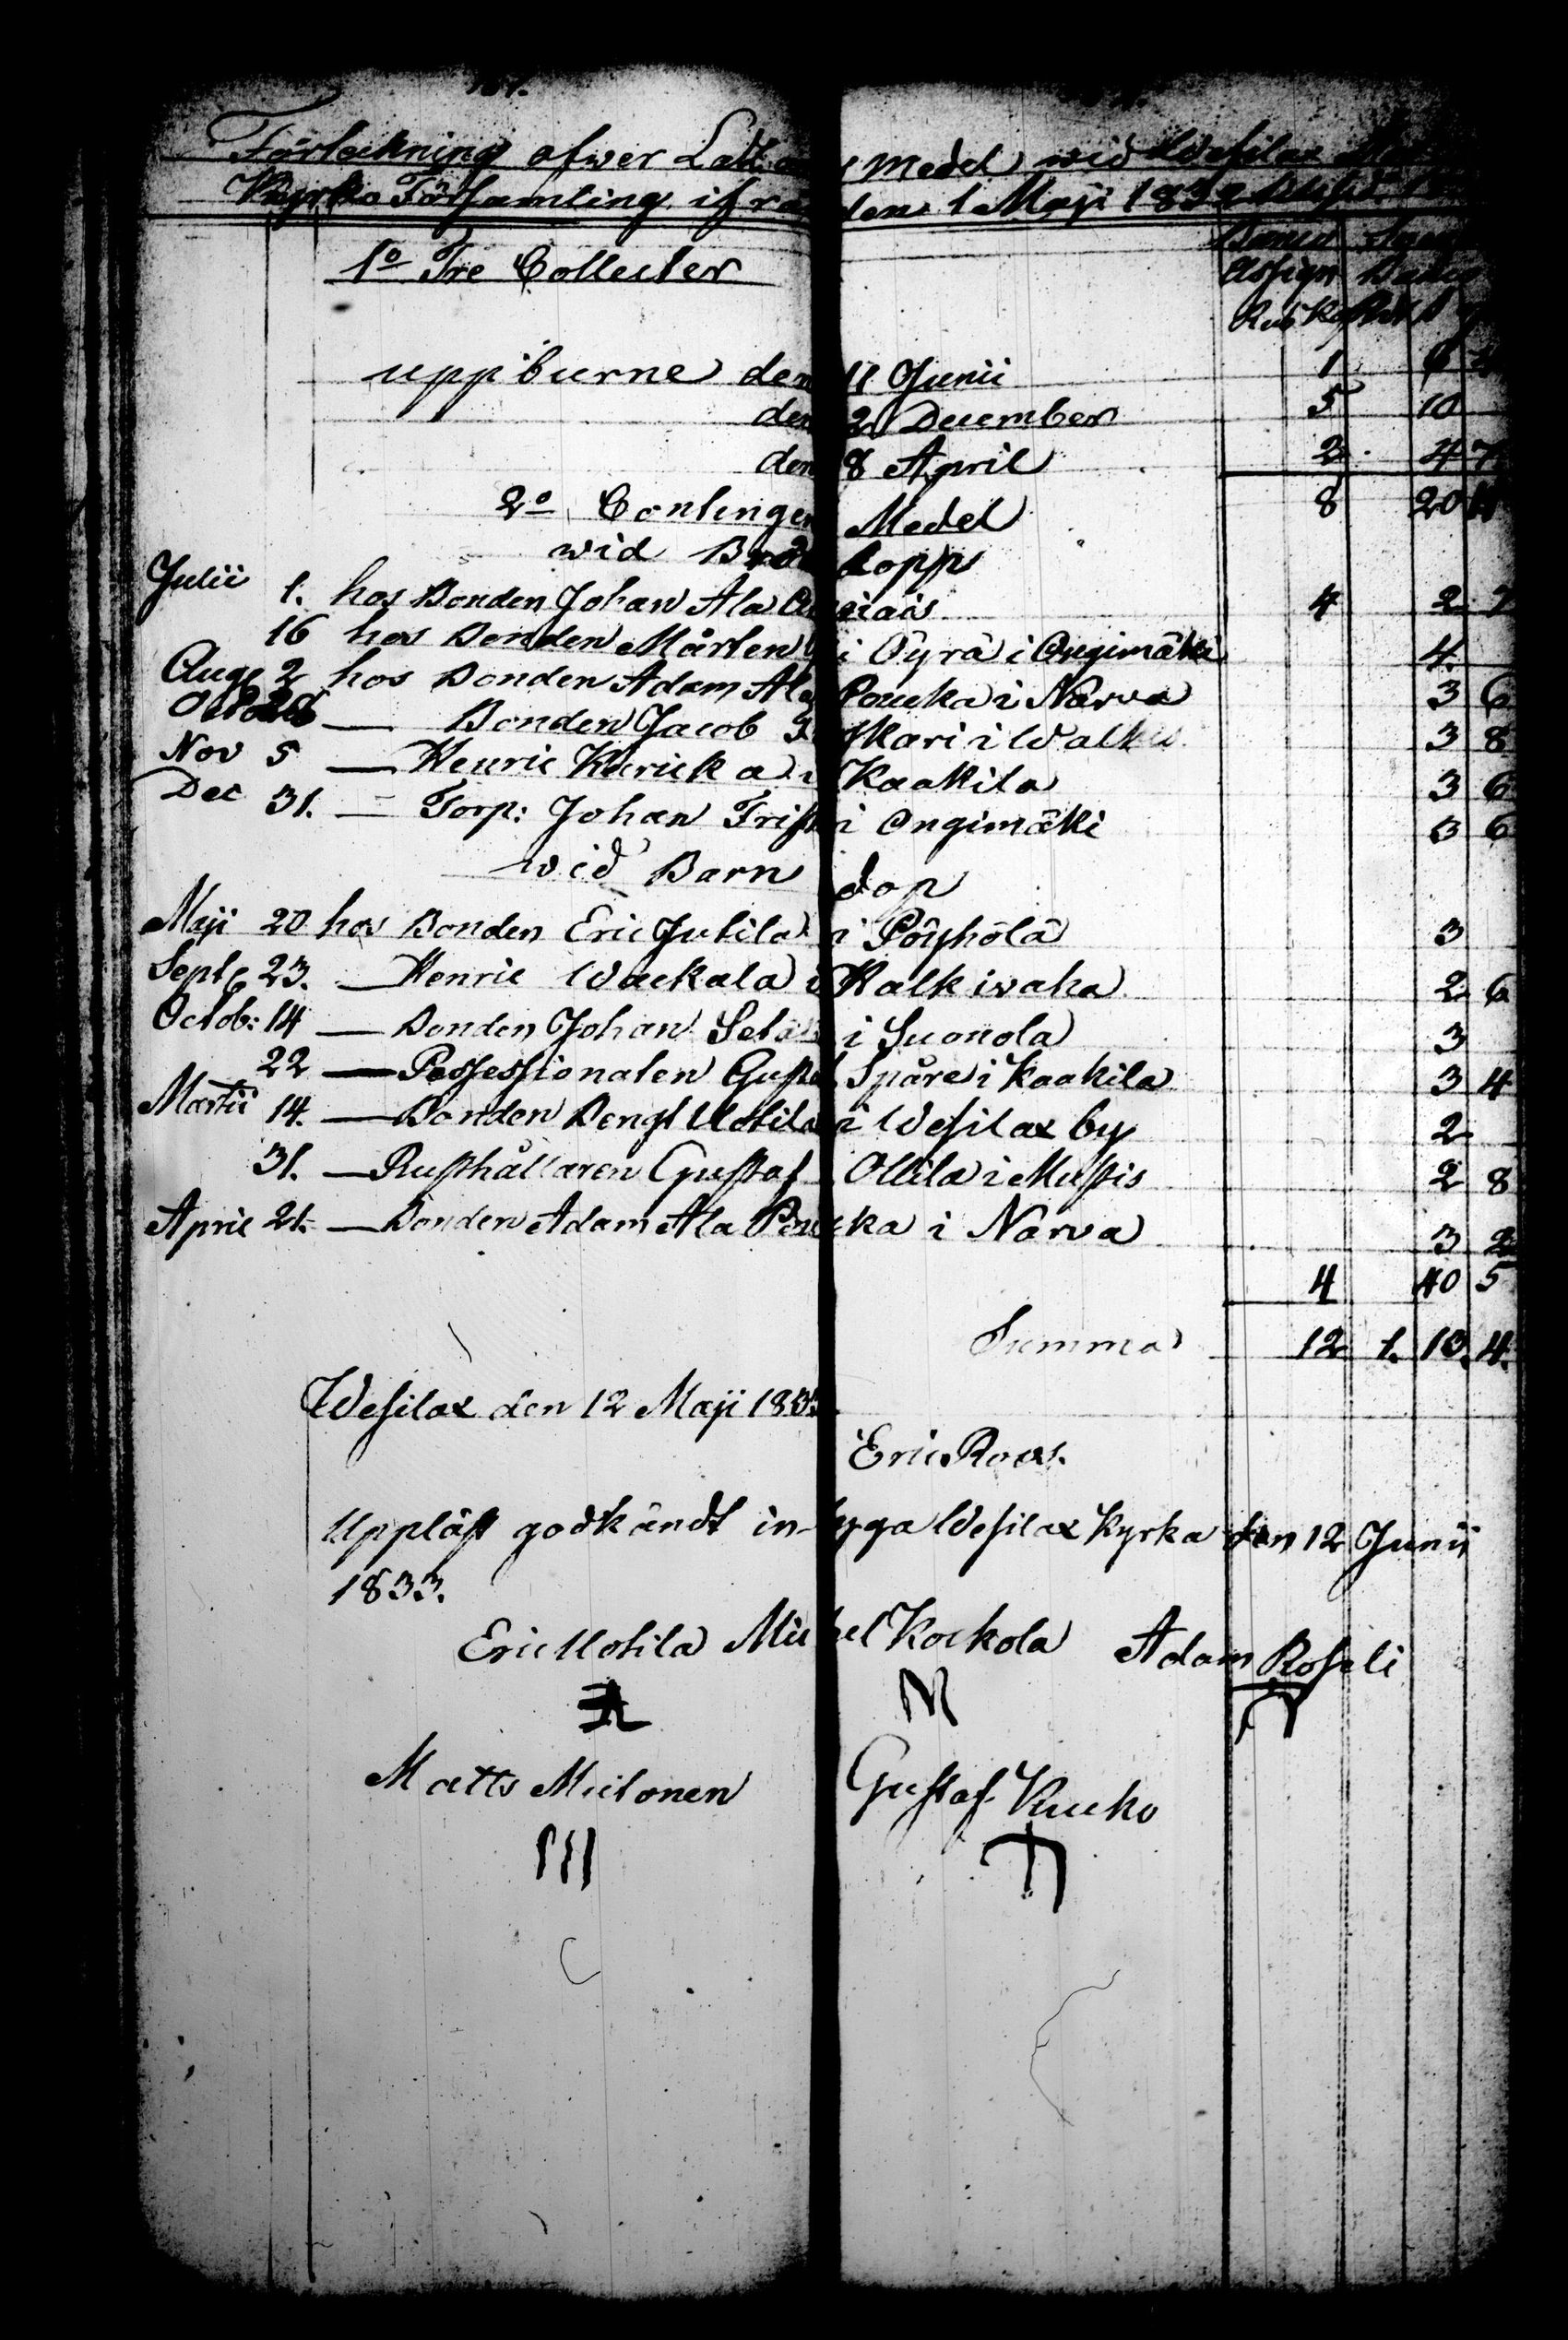 Förteckning öfwer Medel wid Wesilax
Kyrko Församling ifrån den 1 Maji 1832
1o Tre Collecter Assign
Rub K
uppburne den 11 Junii 1 6
den 2 December 5 10
den 8 April 2 4 7
2o Contingent Medel 8 20
wid Brölopp
Julii 1. hos Bonden Johan Ala 4 2
16 hos Bonden Mårten i Öyrä i Ongimäki 4
Aug 2 hos Bonden Adam Ala Pouka i Narva 3 6
— Bonden Jacob i Walki 3 8
Nov 5 — Henric Kurick a i Kaakila 3 6
Dec 31. — Torp: Johan Frist i Ongimäki 3 6
wid Barn dop
Maji 20 hos Bonden Eric Jutila i Pöyhölä 3
Septe 23. — Henric Wackala i Kalkiwaha 2 6
Octob: 14 — Bonden Johan i Suonola 3
22 — Possessionaten Gustaf Spåre i Kaakila 3 4
Martii 14. — Bonden Bengt Uotila i Wesilax by 2
31. — Rusthållaren Gustaf Ollila i Mustis 2 8
April 21. — Bonden Adam Ala Pouka i Narva 3 2
4 40 5
Summa 12 1. 13. 4.
Wesilax den 12 Maji 183
Eric Roos.
Uppläst godkändt in Wesilax Kyrka den 12 Junii
1833.
Eric Uotila Michel Kockola Adam Roseli
Matts Mielonen Gustaf Kuuko